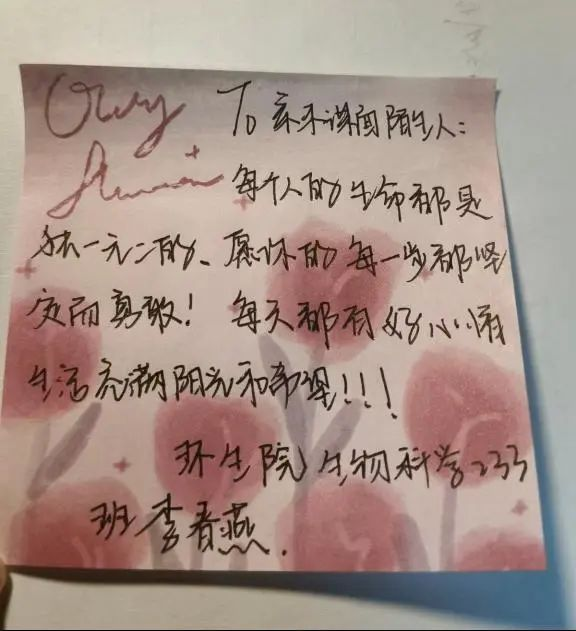 To 素未谋面陌生人:
每个人的生命都是
独一无二的、愿你的每一步都坚
定而勇敢! 每天都有好心情
生活充满阳光和希望!!!
环生院生物科学233
班李春燕.